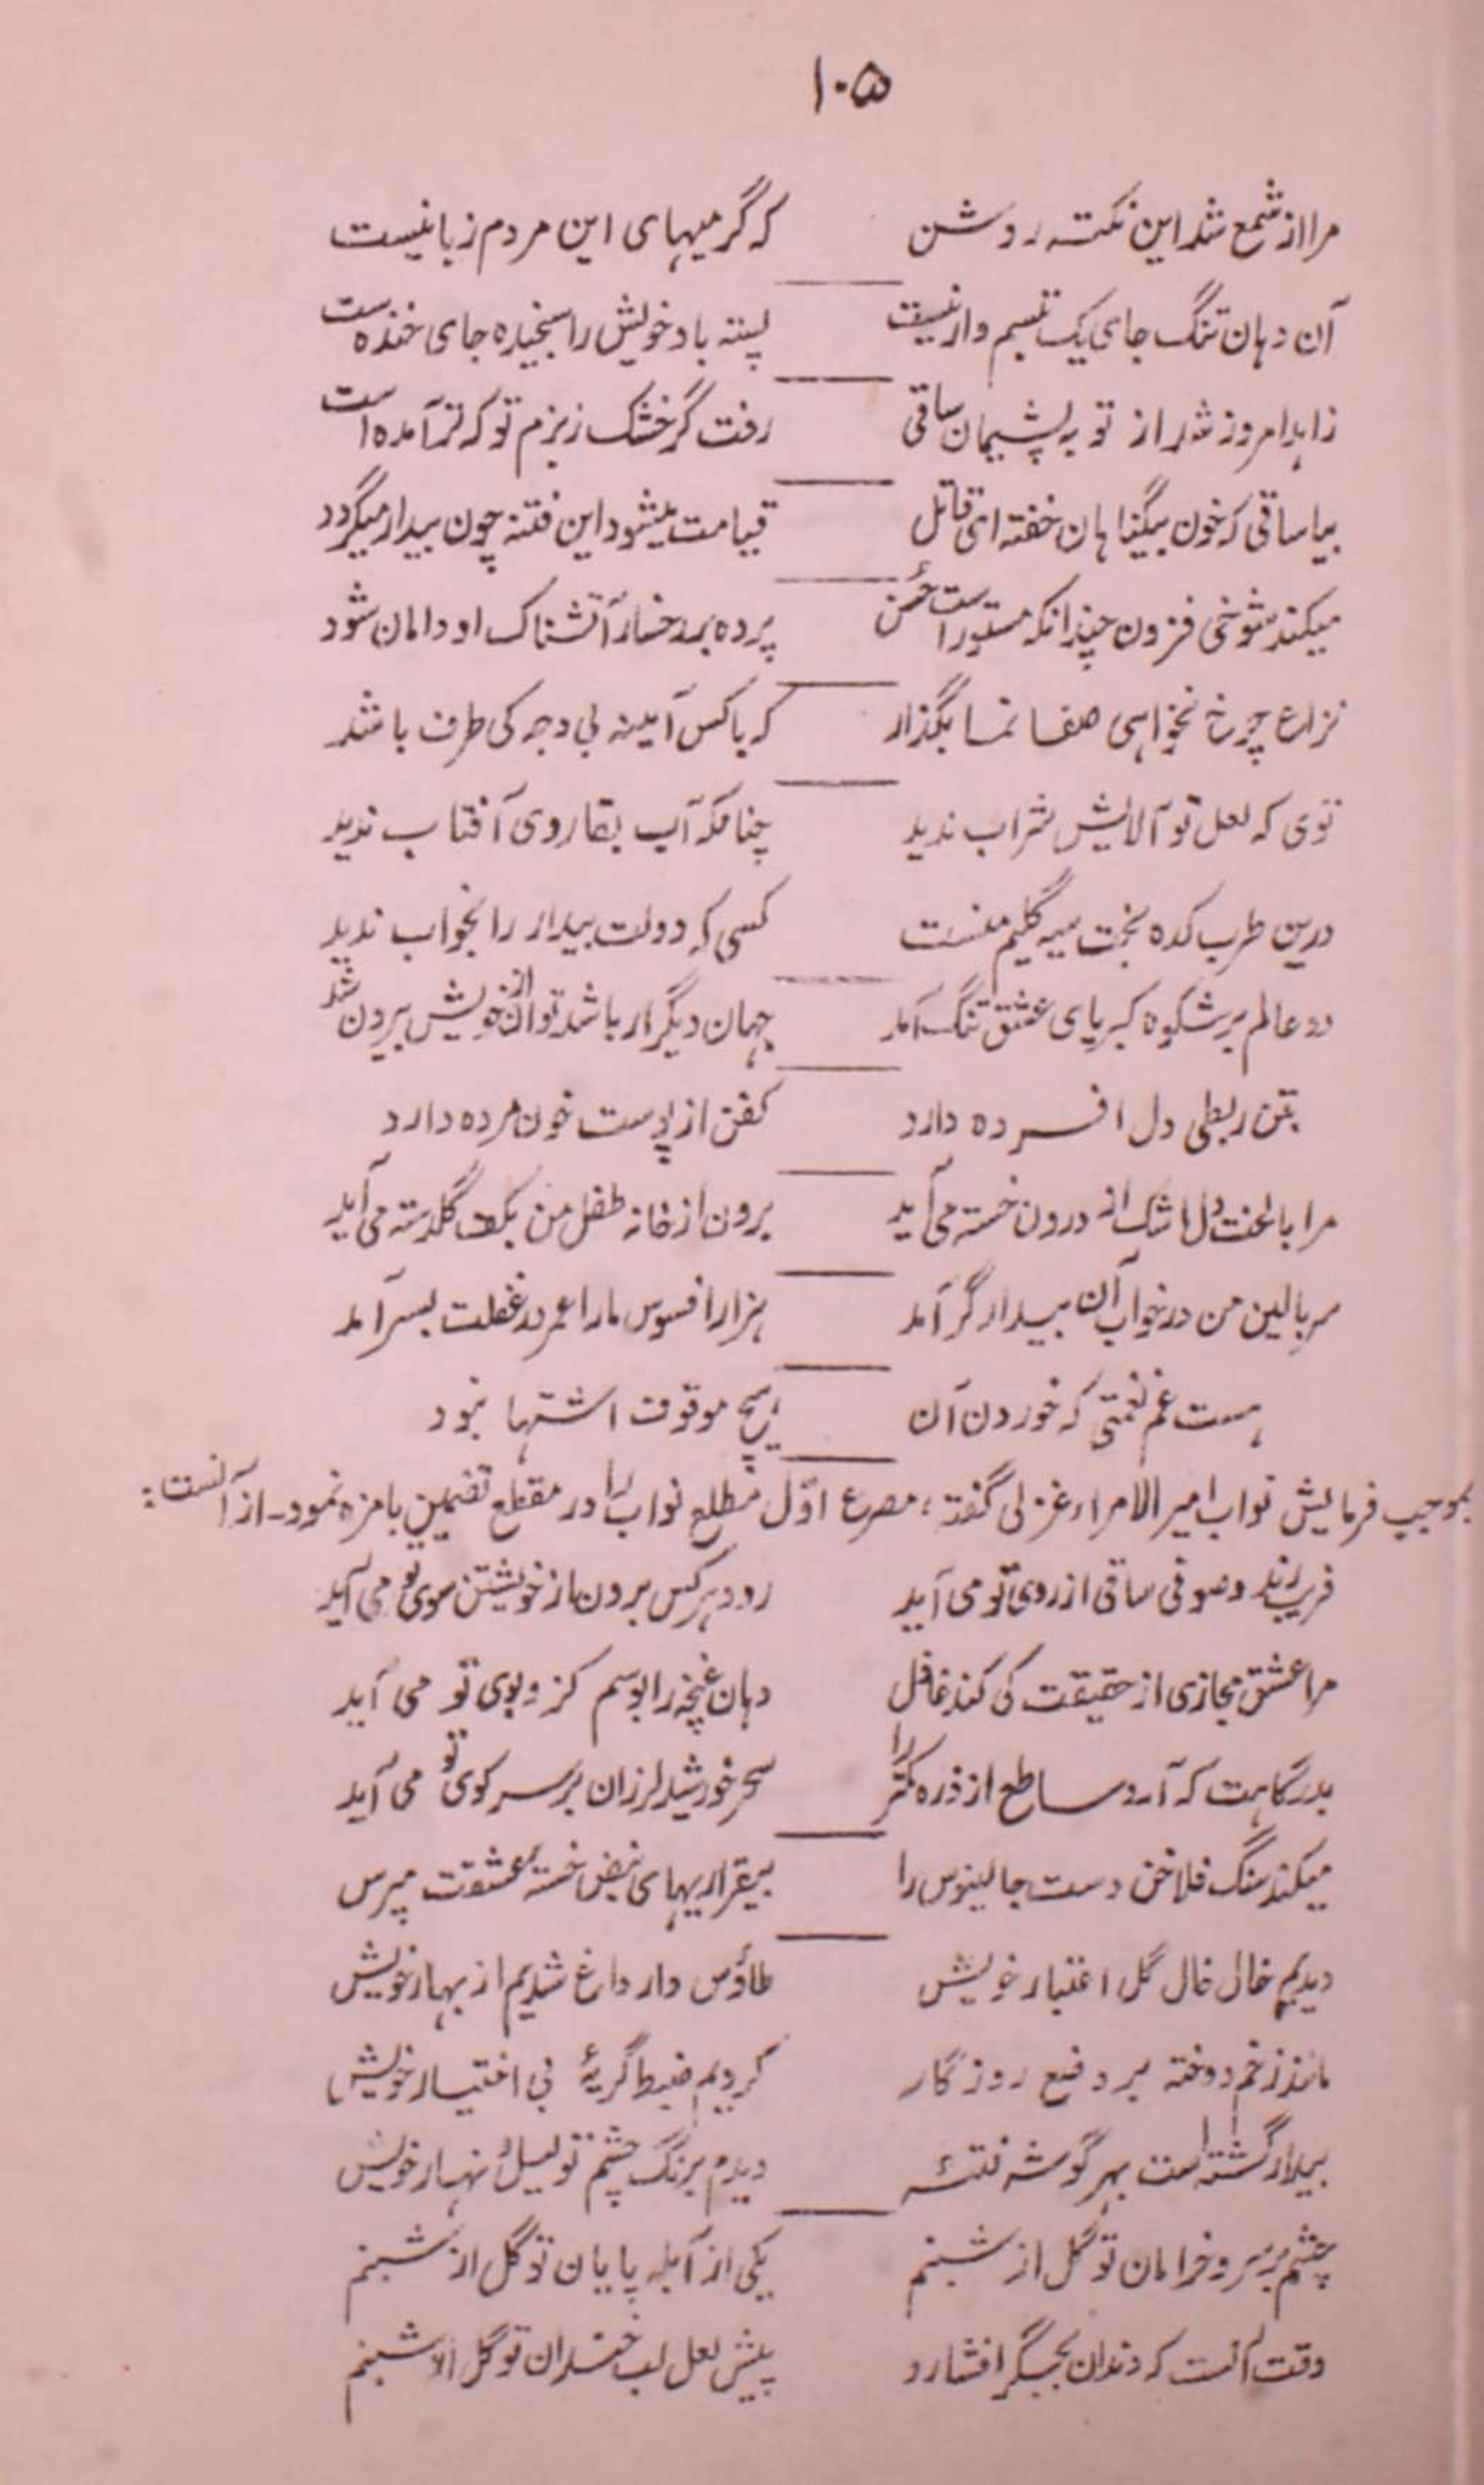 ۱۰۵
مرا از شمع شد این نکته روشن که گرمیهای این مردم زبانیست
آن دهان تنگ جای یک تبسم وار نیست پسته باد خویش را سنجیده جای خنده است
زاهد امروز شد از توبه پشیمان ساقی رفت گر خشک ز بزم تو که تر آمده است
بیا ساقی که خون بیگناهان خفته ای قاتل قیامت میشود این فتنه چون بیدار میگردد
میکند شوخی فزون چندانکه مستور است حسن پرده بر رخسار آتشناک او دامان شود
نزاع چرخ نخواهی صفا نما بگذار که با کس آینه بی وجه کی طرف باشد
توی که لعل تو آلایش شراب ندید چنانکه آب بقا روی آفتاب ندید
درین طرب کده بخت سیه گلیم منست کسی که دولت بیدار را بخواب ندید
دو عالم بر شکوه کبریای عشق تنگ آمد جهان دیگر ار باشد توان از خویش بیرون شد
بتن ربطی دل افسرده دارد کفن از پوست خون مرده دارد
مرا با لخت دل اشک از درون خسته می آید برون از خانه طفل من بکف گلدسته می آید
سر بالین من در خواب آن بیدادگر آمد هزار افسوس ما را عمر در غفلت بسر آمد
هست غم نعمتی که خوردن آن هیچ موقوف اشتها نبود
بموجب فرمایش نواب امیر الامراء غزلی گفته، مصرع اوّل مطلع نواب را در مقطع تضمین بامزه نمود۔ از آنست:
فریب رند و صوفی ساقی از روی تو می آید رود هر کس برون از خویشتن سوی تو می آید
مرا عشق مجازی از حقیقت کی کند غافل دهان غنچه را بوسم کزو بوی تو می آید
بدرگاهت که آرد ساطع از ذره کمتر را سحر خورشید لرزان بر سر کوی تو می آید
میکند سنگ فلاخن دست جالینوس را بیقراریهای نبض خستهٔ عشقت مپرس
دیدیم خالی خال گل اعتبار خویش طاؤس وار داغ شدیم از بهار خویش
مانند زخم دوخته بر وضع روزگار کردیم ضبط گریهٔ بی اختیار خویش
بیدار گشته است بهر گوشه فتنهٔ دیدم برنگ چشم تو لیل و نهار خویش
چشم بر سرو خرامان تو گل از شبنم یکی از آبله پایان تو گل از شبنم
وقت آنست که دندان بجگر افشارد پیش لعل لب خندان تو گل از شبنم